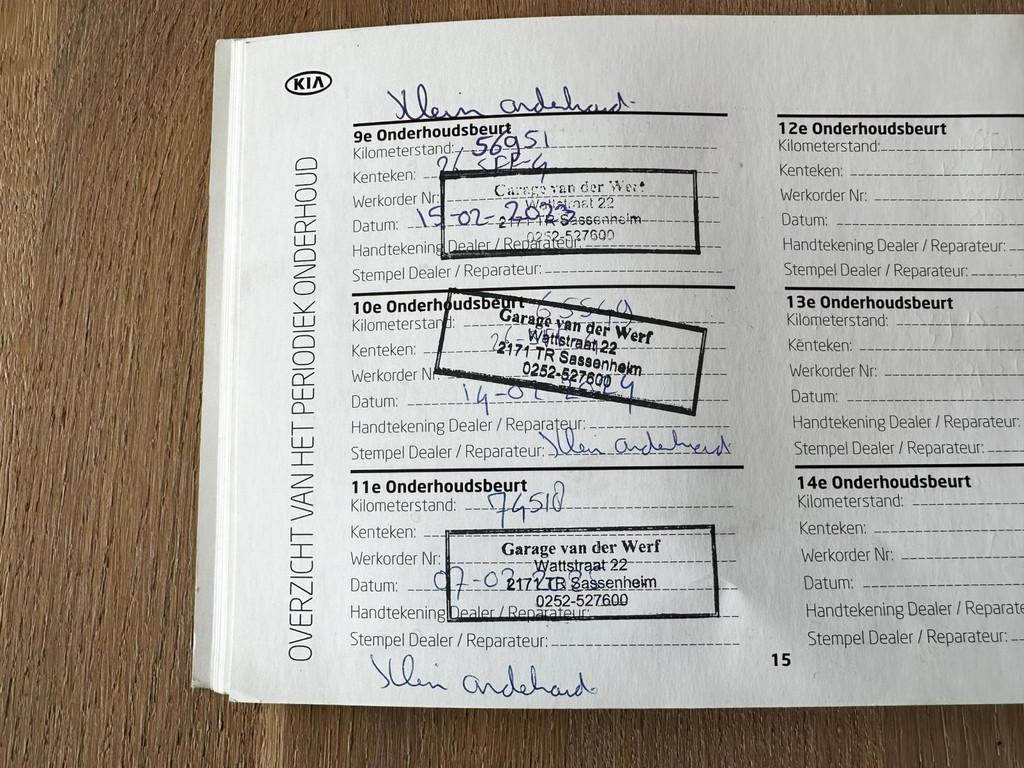 KIA
OVERZICHT VAN HET PERIODIEK ONDERHOUD
Klein onderhoud
9e Onderhoudsbeurt
Kilometerstand: 56951
Kenteken:
Werkorder Nr:
Garage van der Werf
Wattstraat 22
Datum: 15-02-2023
2171 TR Sassenheim
0252-527600
Handtekening Dealer / Reparateur:
Stempel Dealer / Reparateur:
10e Onderhoudsbeurt
Kilometerstand:
Garage van der Werf
Wattstraat 22
Kenteken:
2171 TR Sassenheim
0252-527600
Werkorder Nr:
Datum: 14-02-2024
Handtekening Dealer / Reparateur:
Stempel Dealer / Reparateur: Klein onderhoud
11e Onderhoudsbeurt
Kilometerstand: 74510
Kenteken:
Garage van der Werf
Werkorder Nr:
Wattstraat 22
Datum: 07-02
2171 TR Sassenheim
0252-527600
Handtekening Dealer / Reparateur:
Stempel Dealer / Reparateur:
Klein onderhoud
12e Onderhoudsbeurt
Kilometerstand:
Kenteken:
Werkorder Nr:
Datum:
Handtekening Dealer / Reparateur:
Stempel Dealer / Reparateur:
13e Onderhoudsbeurt
Kilometerstand:
Kenteken:
Werkorder Nr:
Datum:
Handtekening Dealer / Reparateur:
Stempel Dealer / Reparateur:
14e Onderhoudsbeurt
Kilometerstand:
Kenteken:
Werkorder Nr:
Datum:
Handtekening Dealer / Reparate
Stempel Dealer / Reparateur:
15